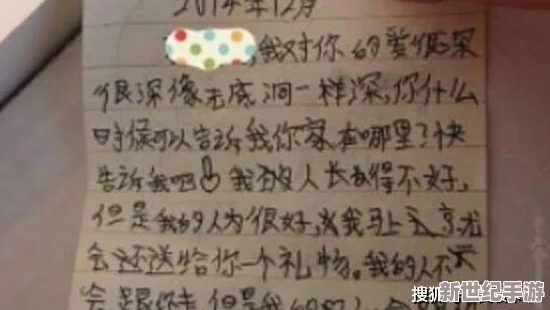 2014年12月
,我对你的爱很深
很深像无底洞一样深,你什么
时候可以告诉我你家在哪里了快
告诉我吧 我的人长的得不好,
但是我的人为很好,我马上
会还送给你一个礼物。我的人不
会跟你走 但是我的
搜狐
新世纪手游